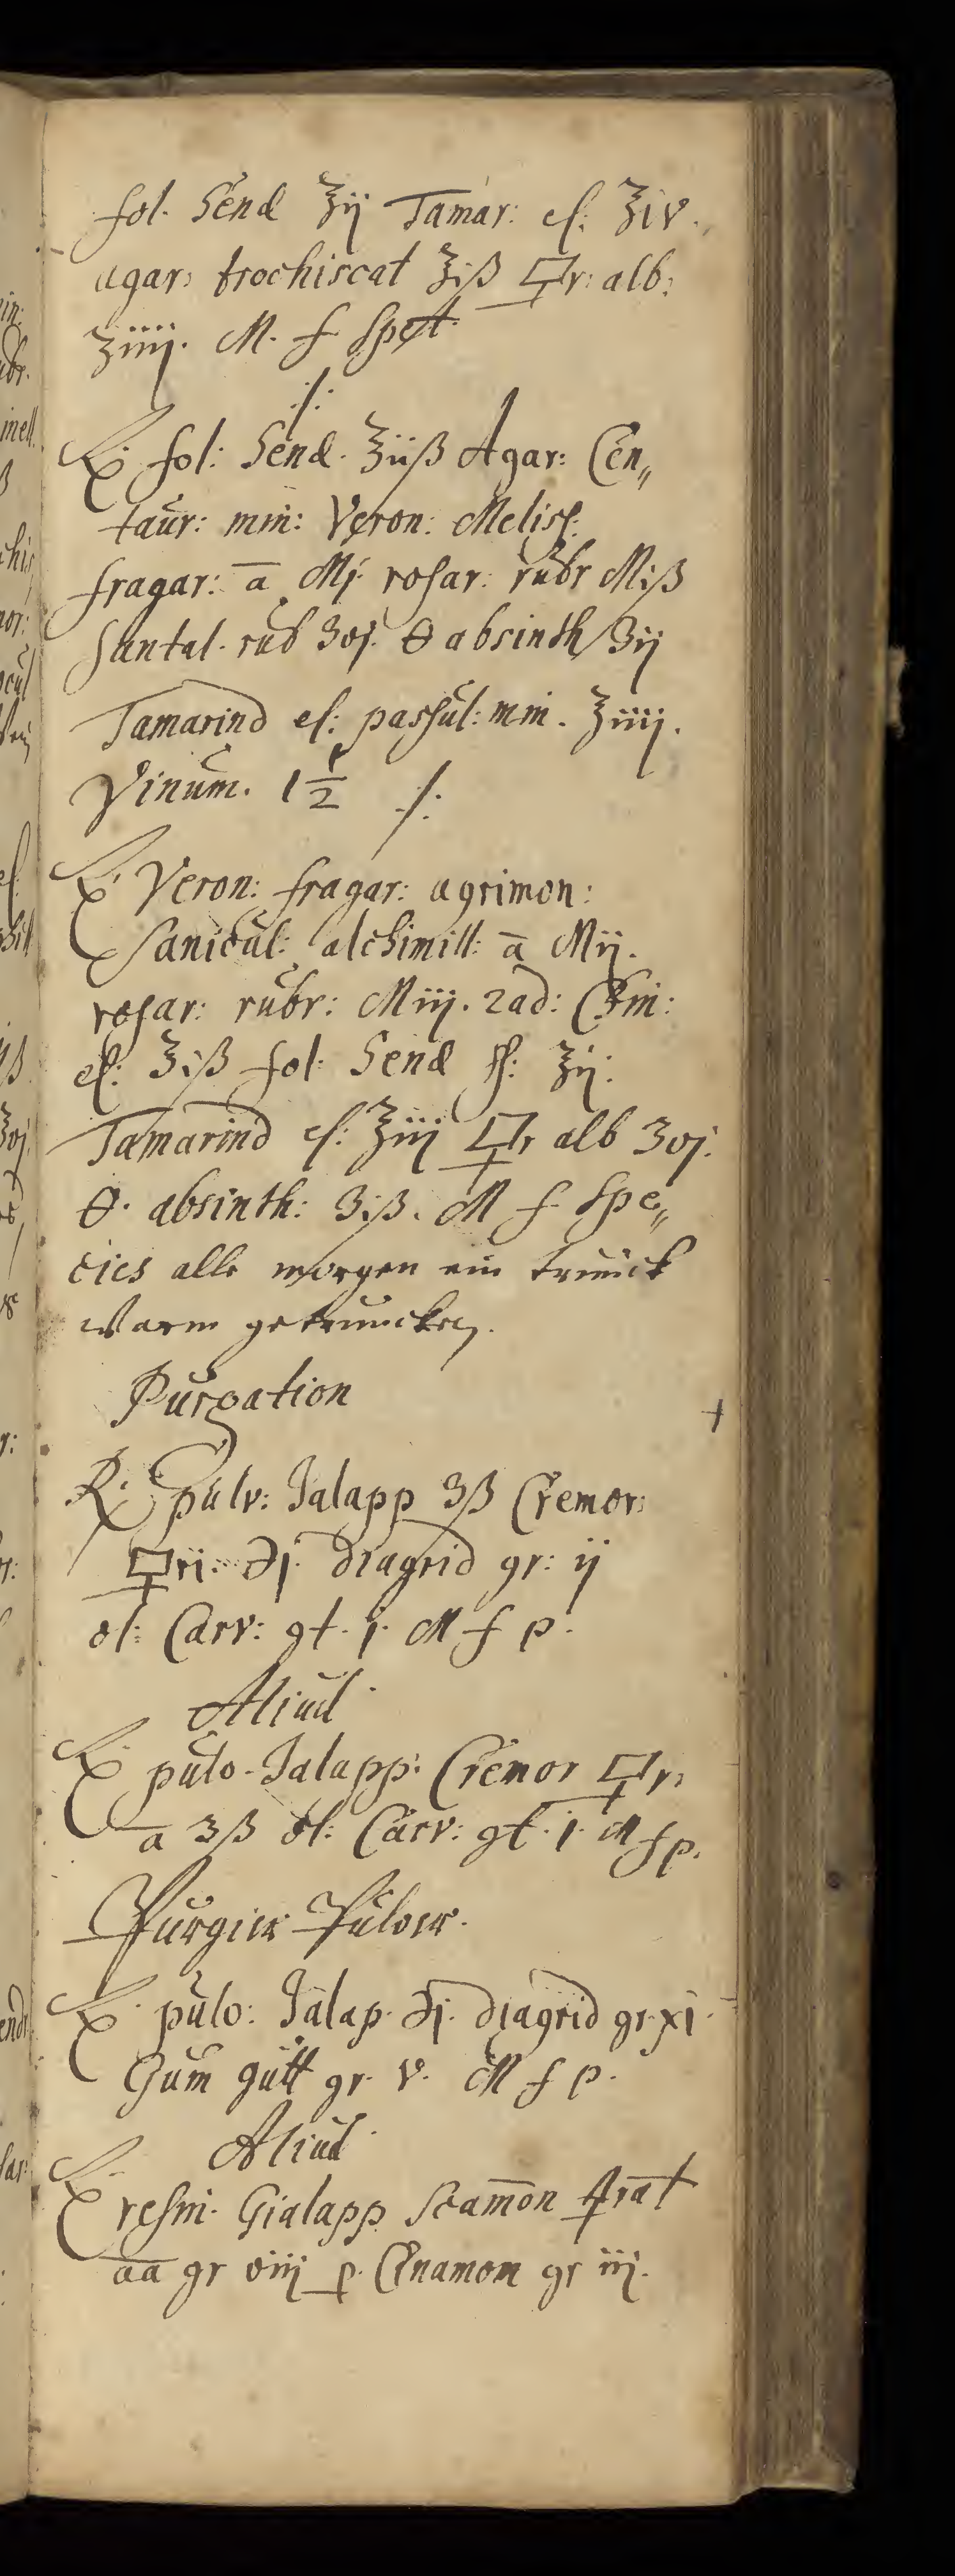 fol. Send ℥ij Tamar: el: ℥iv.
agar: trochiscat ℥iß 🜿r: alb:
℥iiij. M. f Spet
·/:
℞. fol: Send. ℥iiß Agar: Cen„
taur: min: Veron: Meliss:
fragar: ā Mj. rosar: rubr Miß
Santal. rub ʒvj. 🜔 absinth ʒij
Tamarind el: passul: min. ℥iiij.
Vinum. 1 1/2 ·/:
℞. Veron: fragar: agrimon:
Sanicul: alchimill: ā Mij.
rosar: rubr: Miij. rad: Chin:
el: ℥iß fol: Send ss: ℥ij:
Tamarind el: ℥iij 🜿r alb ʒvj.
🜔. absinth: ʒiß. M f Spe„
cies alle morgen ein trunck
warm getruncken.
Purgation
℞. pulv: Jalapp ʒß Cremor:
🜿ri: ℈j. diagrid gr: ij
ol: Carv: gt. j. M f p.
Aliud
℞ pulv. Jalapp: Cremor 🜿r:
a ʒß ol: Carv: gt. j. M f p.
Purgier Pulver.
℞. pulv: Jalap. ℈j. diagrid gr. xi.
Gum gutt gr. v. M f p.
Aliud
℞ resin. Gialapp Scam̄on 🜍rat
aa gr viij p. Cinamom gr iij.